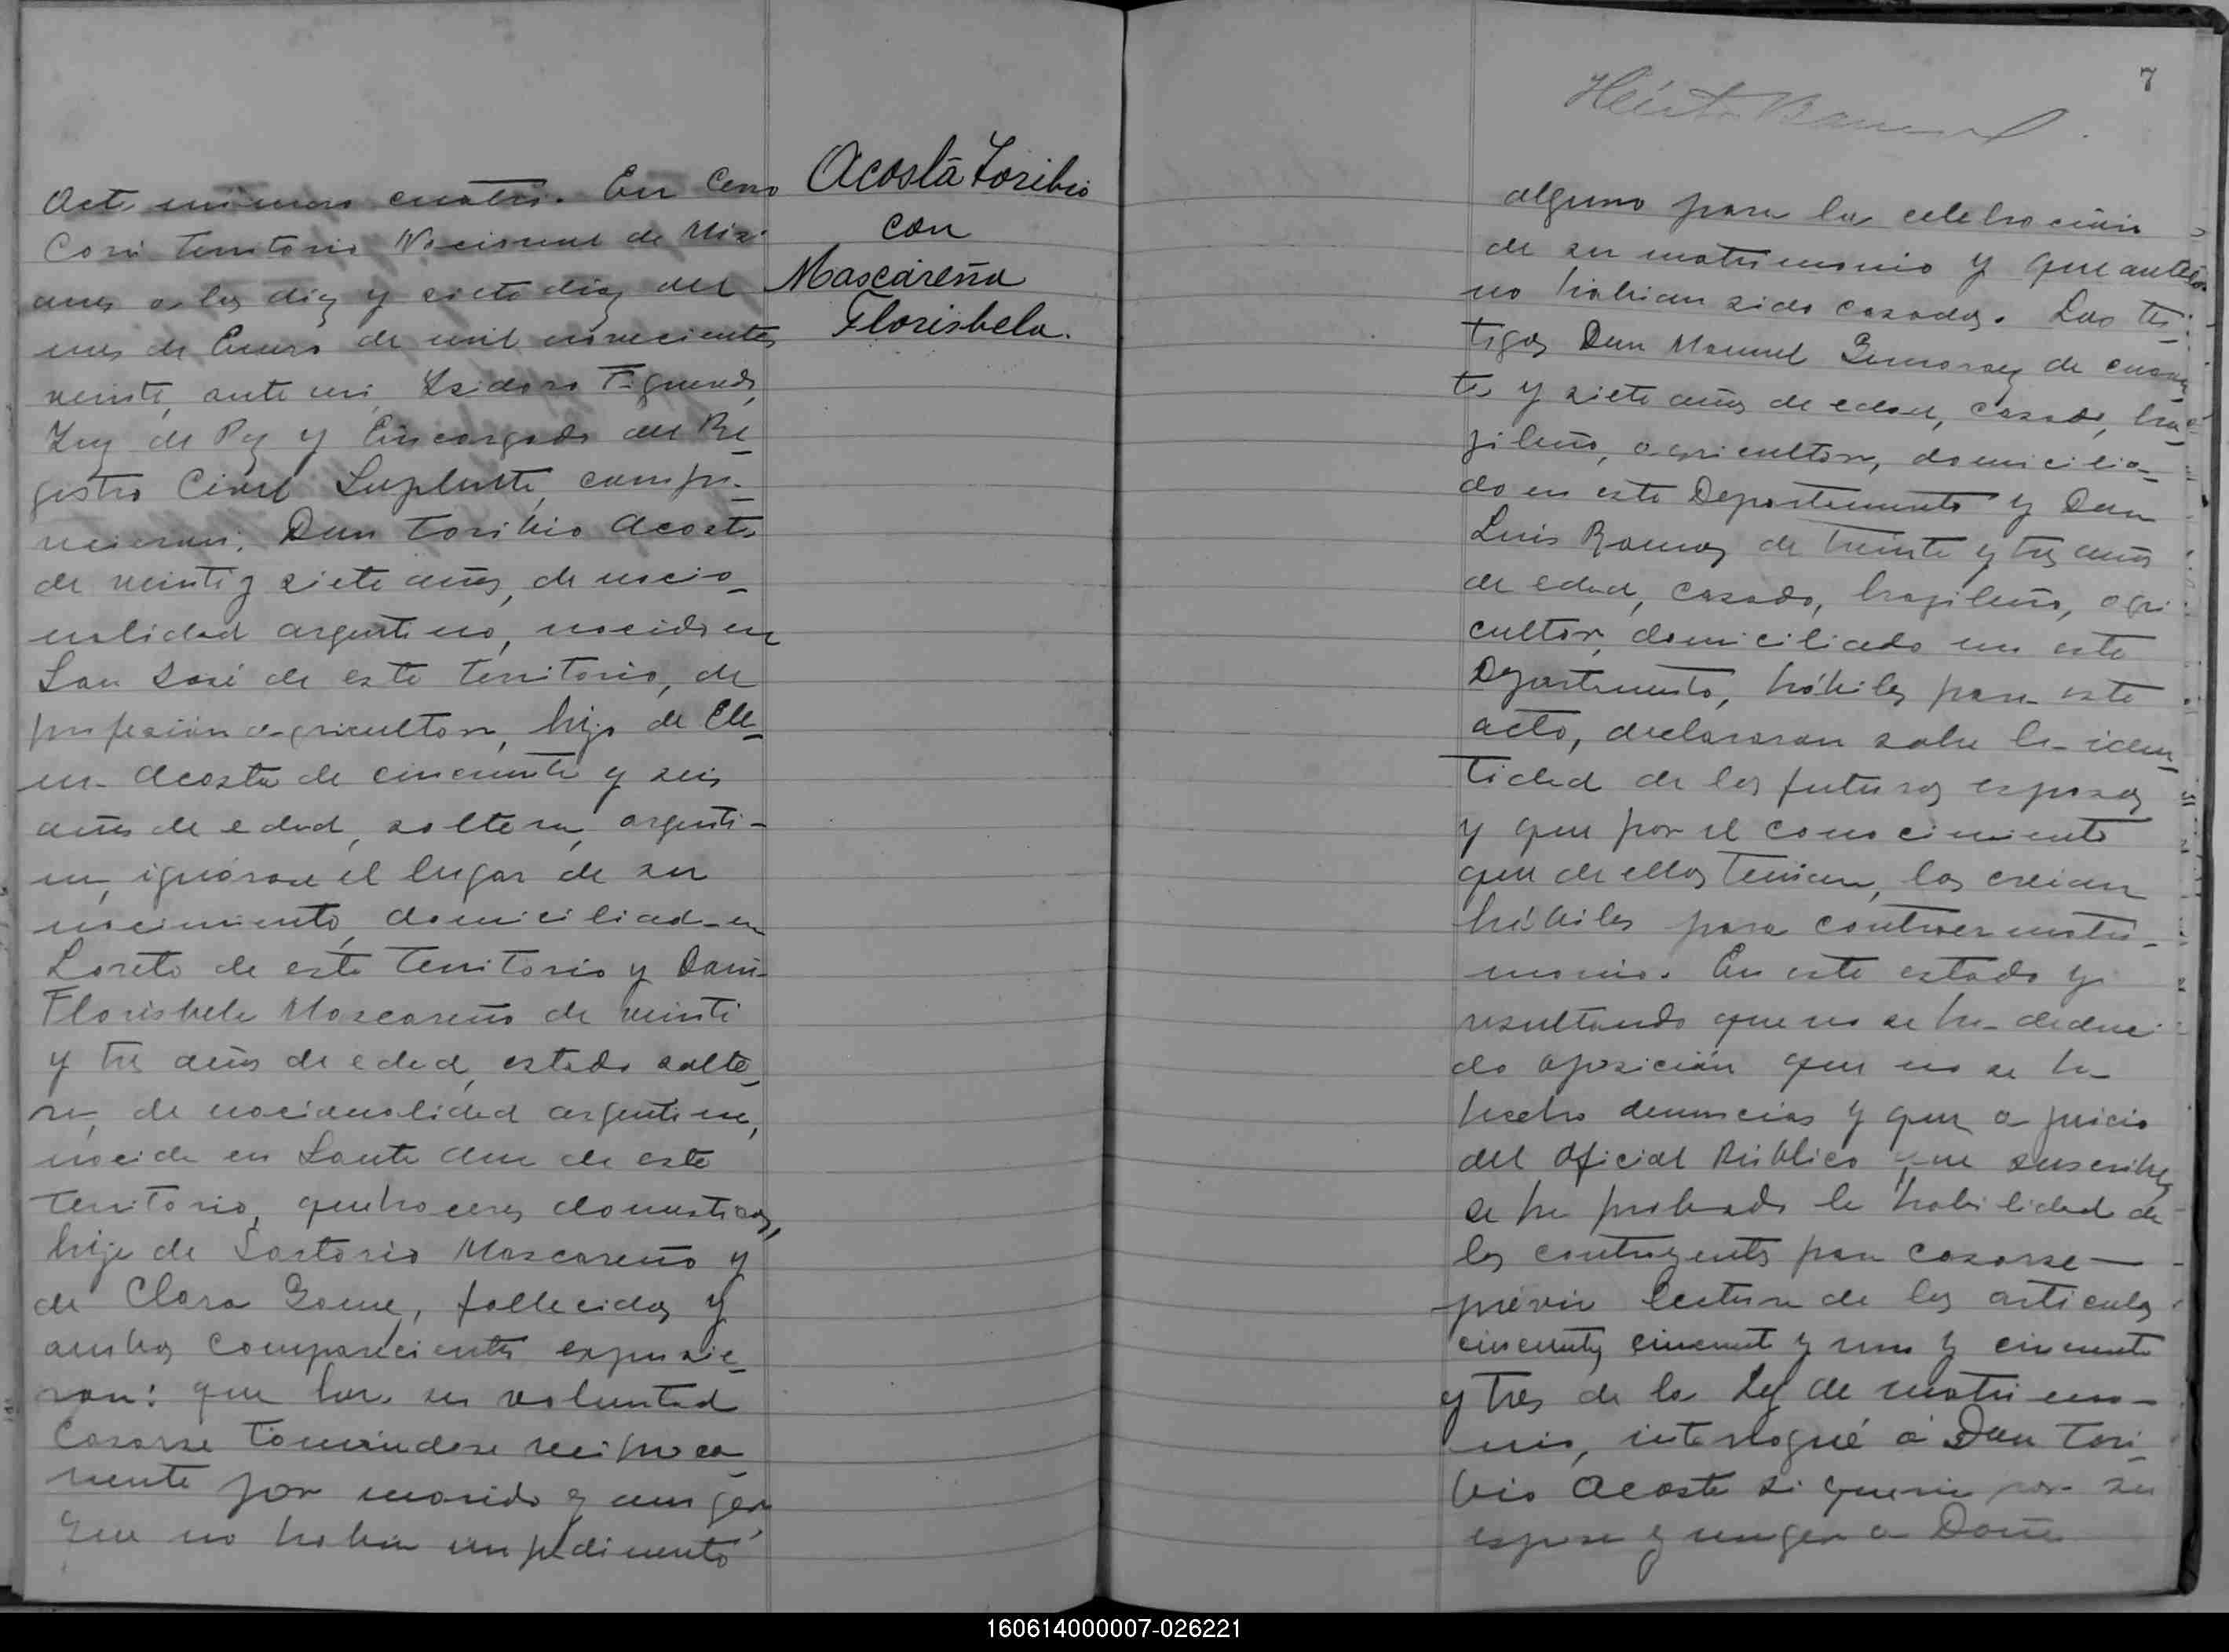 Acta número cuatro. En Cerro
Corá Territorio Nacional de Misi
ones a los diez y siete dias del
mes de Enero de mil novecientos
veinte, ante mi, Isidoro Figueredo,
Juez de Paz y Encargado del Re_
gistro Civil Suplente, compa_
recieron: Don Toribio Acosta
de veinti y siete años, de nacio_
nalidad argentino, nacido en
San José de este Territorio, de
profesión agricultor, hijo de Ele_
na Acosta de cincuenta y seis
años de edad, soltera, argenti-
na, ignórase el lugar de su
nacimiento, domiciliada en
Loreto de este Territorio y Doña
Florisbela Mascareño de veinti
y tres años de edad, estado solte_
ra, de nacionalidad argentina,
nacida en Santa Ana de este
Territorio, quehaceres domesticos,
hija de Sartorio Mascareño y
de Clara Gome, fallecidos y
ambos comparecientes expusie_
ron: que era su voluntad
Casarse tomándose recíproca_
mente por marido y muger
que no habia impedimento
Acosta Toribio
con
Mascareña
Florisbela.
7
alguno para la celebración
de su matrimonio y que antes
no habian sido casados. Los tes_
tigos Don Manuel de cuaren
ta y siete años de edad, casado, bra_
zileño, agricultor, domicilia_
do en este Departamento y Don
Luis Ramos de treinta y tres años
de edad, casado, brazileño, agri
cultor, domiciliado en este
Departamento, hábiles para este
acto, declararon sobre la iden_
tidad de los futuros esposos
y que por el conocimiento
que de ellos tenian, los creian
hábiles para contraer matri_
monio. En este estado y
resultando que no se ha deduci
do oposición que no se ha
hecho denuncias y que a juicio
del Oficial Público que suscribe
se ha probado la habilidad de
los contrayentes para casarse —
prévia lectura de los articulos
cincuenta, cincuenta y uno y cincuenta
y tres de la Ley de matrimo-
nio, interrogué á Don Tori_
bio Acosta si queria por su
esposa y muger a Doña
160614000007-026221